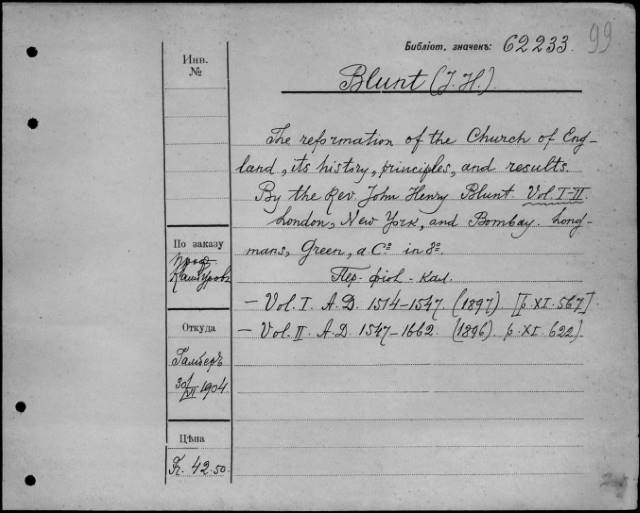 Библіот. значекъ: 62233.
99
Инв.
№
Blunt (J. H.).
The reformation of the Church of Eng-
land, its history, principles, and results.
By the Rev. John Henry Blunt. Vol. I-II.
London, New York, and Bombay. Long-
mans, Green, a Cº in 8º.
По заказу
проф.
Пер. фіол. - кал.
— Vol. I. A. D. 1514-1547 (1897) [p. XI. 567].
Откуда
— Vol. II. A. D. 1547-1662. (1896). p. XI. 622).
30/VI 1904
Цѣна
Fr. 42.50.